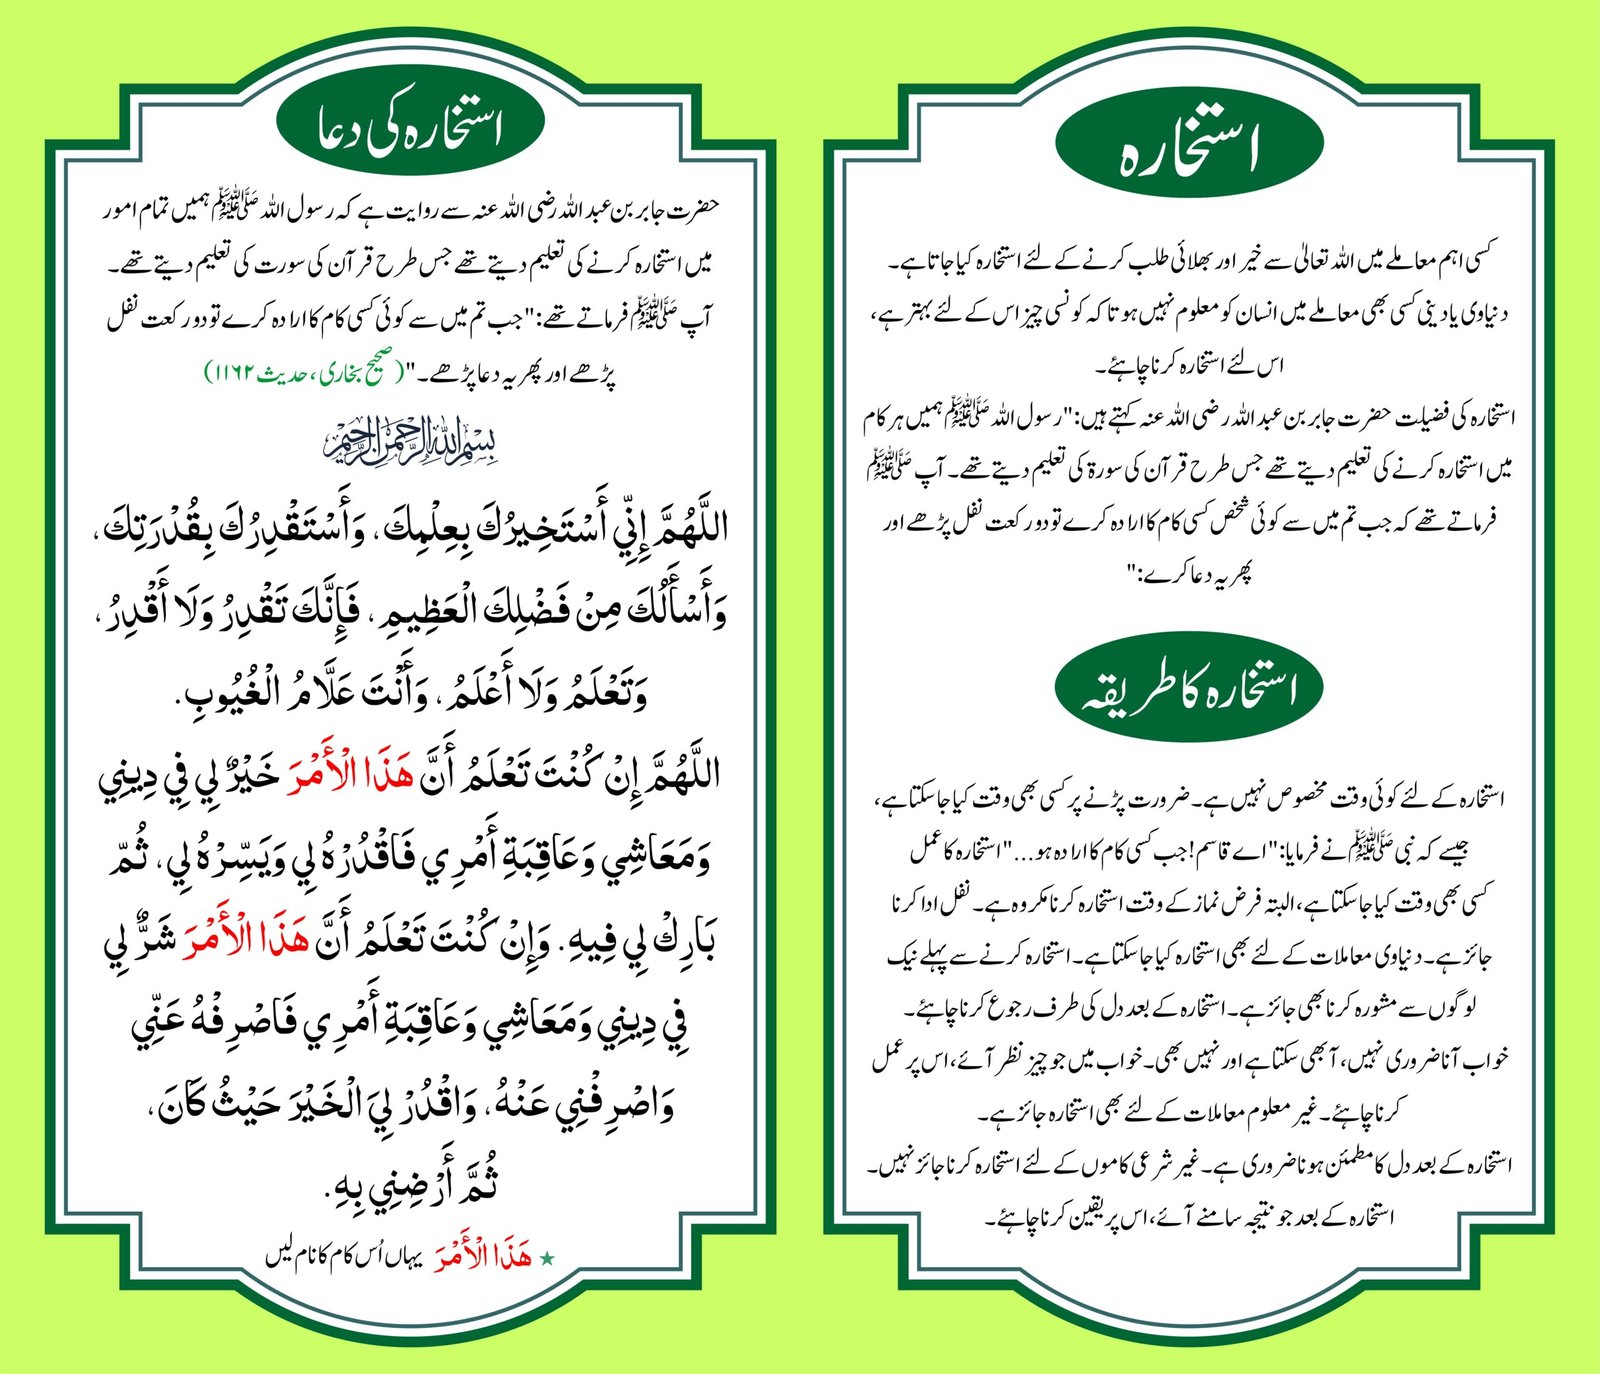 استخارہ
کسی اہم معاملے میں اللہ تعالیٰ سے خیر اور بھلائی طلب کرنے کے لئے استخارہ کیا جاتا ہے۔
دنیاوی یا دینی کسی بھی معاملے میں انسان کو معلوم نہیں ہوتا کہ کونسی چیز اس کے لئے بہتر ہے،
اس لئے استخارہ کرنا چاہئے۔
استخارہ کی فضیلت حضرت جابر بن عبد اللہ رضی اللہ عنہ کہتے ہیں:"رسول اللہ ﷺ ہمیں ہر کام
میں استخارہ کرنے کی تعلیم دیتے تھے جس طرح قرآن کی سورۃ کی تعلیم دیتے تھے۔ آپ ﷺ
فرماتے تھے کہ جب تم میں سے کوئی شخص کسی کام کا ارادہ کرے تو دو رکعت نفل پڑھے اور
پھر یہ دعا کرے:"
استخارہ کا طریقہ
استخارہ کے لئے کوئی وقت مخصوص نہیں ہے۔ ضرورت پڑنے پر کسی بھی وقت کیا جاسکتا ہے،
جیسے کہ نبی ﷺ نے فرمایا:"اے قاسم! جب کسی کام کا ارادہ ہو..."استخارہ کا عمل
کسی بھی وقت کیا جاسکتا ہے، البتہ فرض نماز کے وقت استخارہ کرنا مکروہ ہے۔ نفل ادا کرنا
جائز ہے۔ دنیاوی معاملات کے لئے بھی استخارہ کیا جاسکتا ہے۔ استخارہ کرنے سے پہلے نیک
لوگوں سے مشورہ کرنا بھی جائز ہے۔ استخارہ کے بعد دل کی طرف رجوع کرنا چاہئے۔
خواب آنا ضروری نہیں، آبھی سکتا ہے اور نہیں بھی۔ خواب میں جو چیز نظر آئے، اس پر عمل
کرنا چاہئے۔ غیر معلوم معاملات کے لئے بھی استخارہ جائز ہے۔
استخارہ کے بعد دل کا مطمئن ہونا ضروری ہے۔ غیر شرعی کاموں کے لئے استخارہ کرنا جائز نہیں۔
استخارہ کے بعد جو نتیجہ سامنے آئے، اس پر یقین کرنا چاہئے۔
استخارہ کی دعا
حضرت جابر بن عبد اللہ رضی اللہ عنہ سے روایت ہے کہ رسول اللہ ﷺ ہمیں تمام امور
میں استخارہ کرنے کی تعلیم دیتے تھے جس طرح قرآن کی سورت کی تعلیم دیتے تھے۔
آپ ﷺ فرماتے تھے:"جب تم میں سے کوئی کسی کام کا ارادہ کرے تو دو رکعت نفل
پڑھے اور پھر یہ دعا پڑھے۔"(صحیح بخاری، حدیث ۱۱۶۲)
بِسْمِ اللهِ الرَّحْمٰنِ الرَّحِيْمِ
اللَّهُمَّ إِنِّي أَسْتَخِيرُكَ بِعِلْمِكَ، وَأَسْتَقْدِرُكَ بِقُدْرَتِكَ،
وَأَسْأَلُكَ مِنْ فَضْلِكَ الْعَظِيمِ، فَإِنَّكَ تَقْدِرُ وَلَا أَقْدِرُ،
وَتَعْلَمُ وَلَا أَعْلَمُ، وَأَنْتَ عَلَّامُ الْغُيُوبِ.
اللَّهُمَّ إِنْ كُنْتَ تَعْلَمُ أَنَّ هَذَا الْأَمْرَ خَيْرٌ لِي فِي دِينِي
وَمَعَاشِي وَعَاقِبَةِ أَمْرِي فَاقْدُرْهُ لِي وَيَسِّرْهُ لِي، ثُمّ
بَارِكْ لِي فِيهِ. وَإِنْ كُنْتَ تَعْلَمُ أَنَّ هَذَا الْأَمْرَ شَرٌّ لِي
فِي دِينِي وَمَعَاشِي وَعَاقِبَةِ أَمْرِي فَاصْرِفْهُ عَنِّي
وَاصْرِفْنِي عَنْهُ، وَاقْدُرْ لِيَ الْخَيْرَ حَيْثُ كَانَ،
ثُمَّ أَرْضِنِي بِهِ.
★ هَذَا الْأَمْرَ یہاں اُس کام کا نام لیں